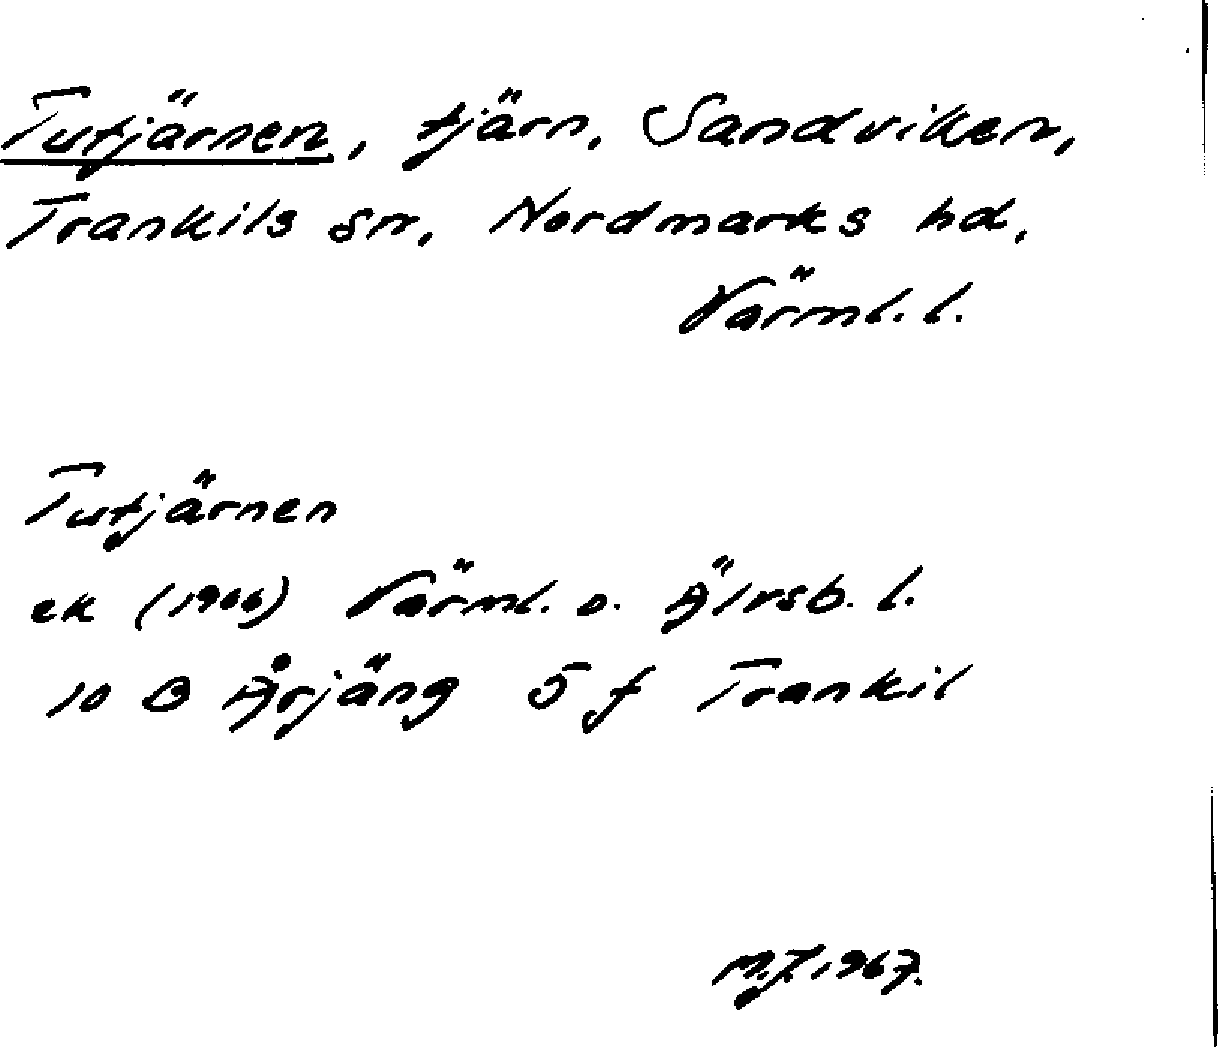 Tutjärnen, tjärn, Sandviken,
Trankils sn, Nordmarks hd,
Värml. l.
Tutjärnen
ek (1966) Värml. o. Älvsb. l.
10 B Årjäng 5 f Trankil
M.J. 1967.